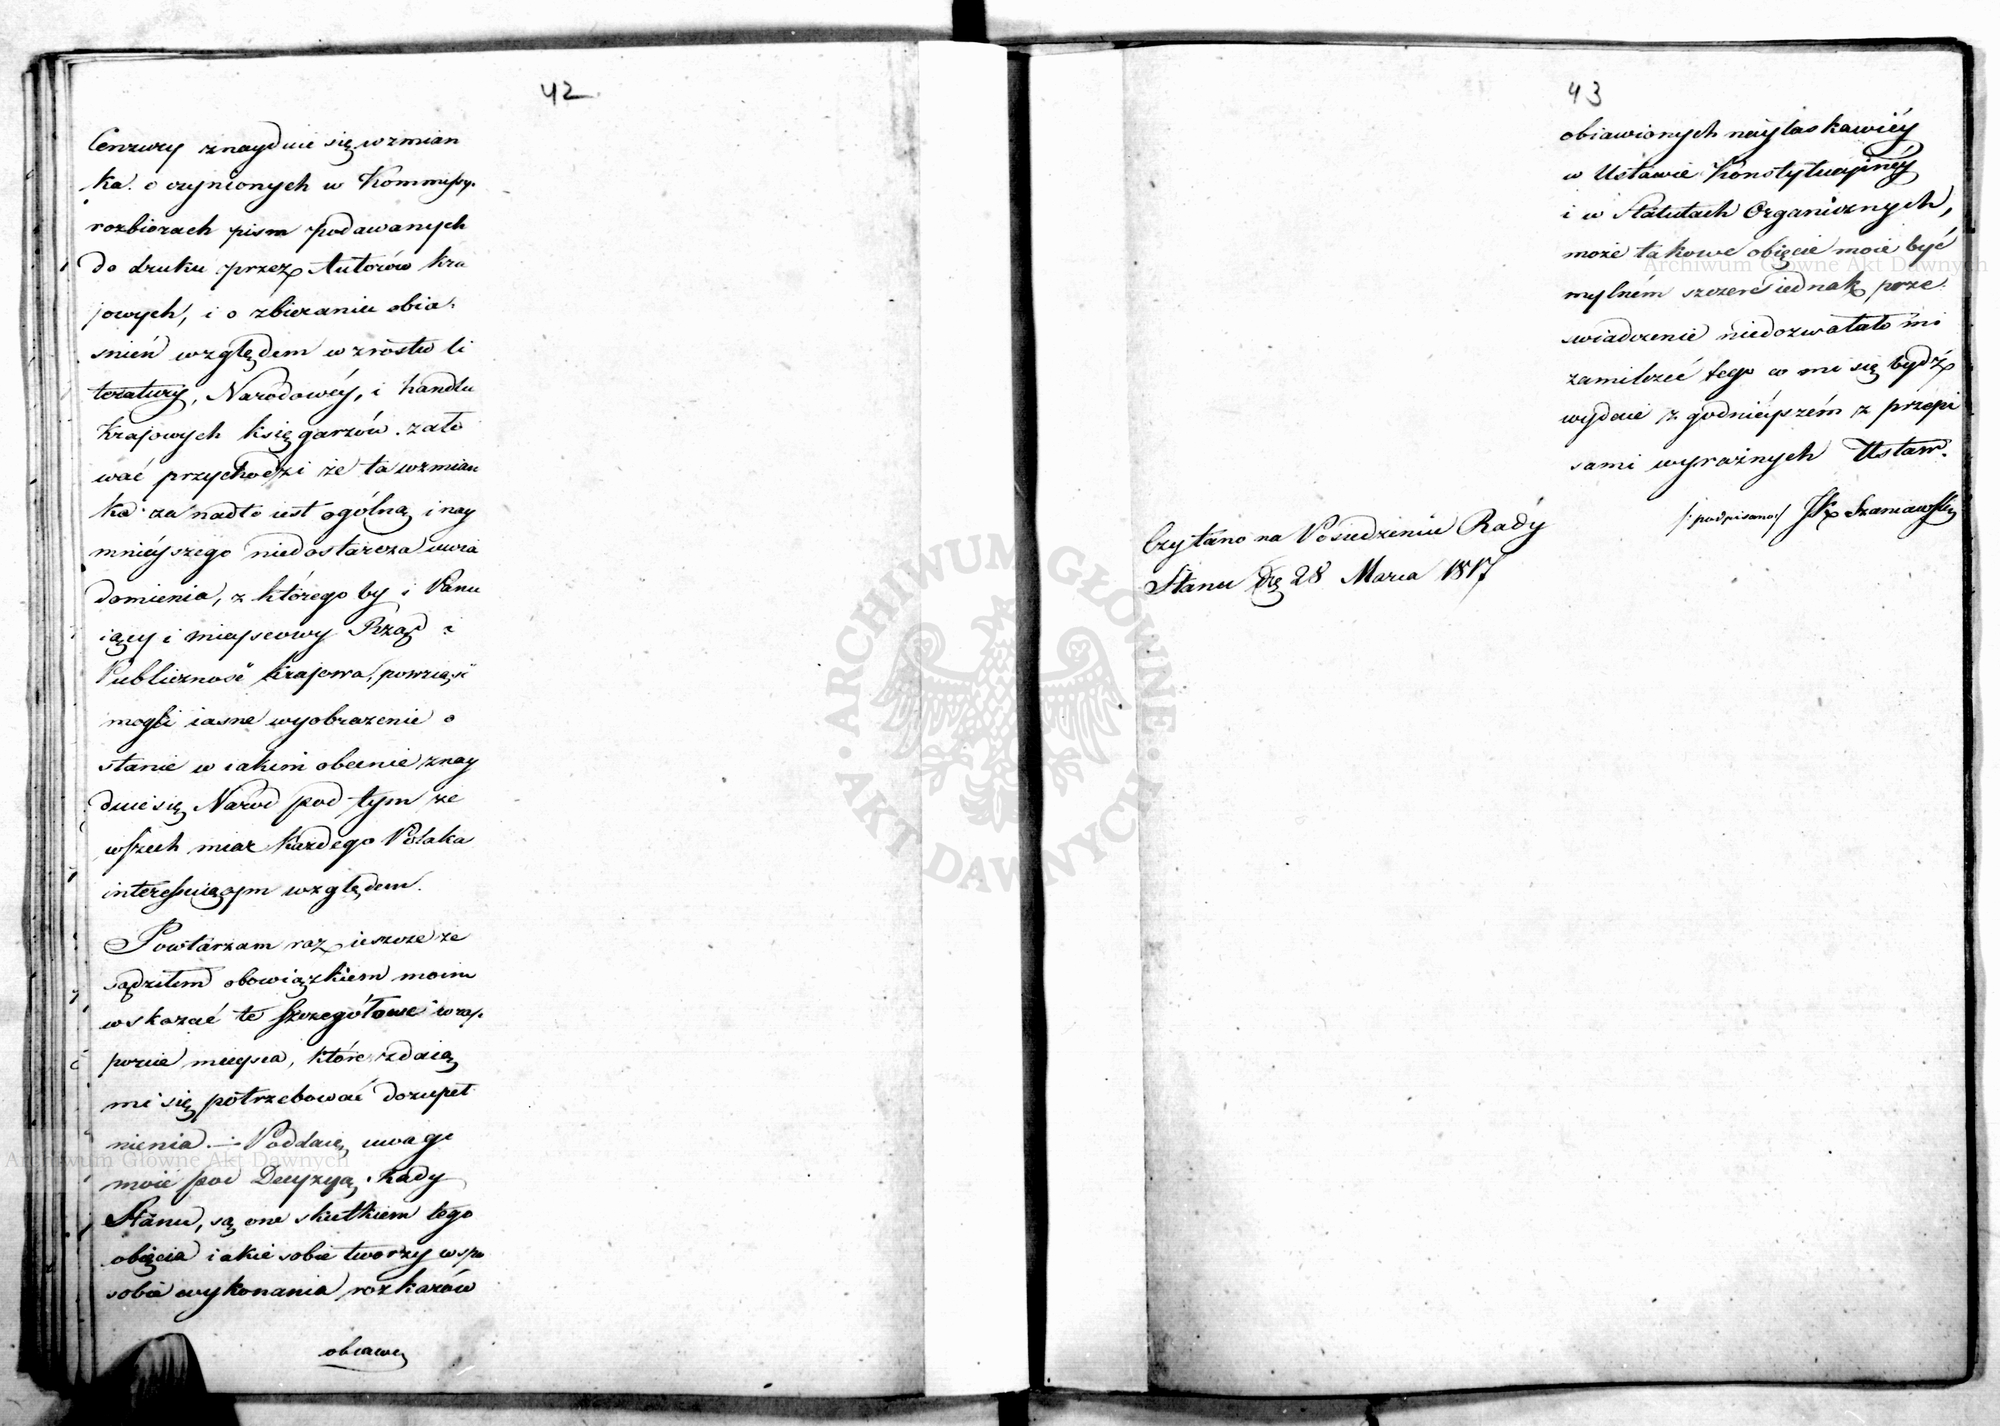 42.
Cenzury znayduie się wzmian
ka o czynionych w Kommissyi
rozbiorach pism podawanych
do druku przez Autorów kra
jowych, i o zbieraniu obia-
śnień względem wzrostu li
teratury, Narodowéy, i handlu
Krajowych księgarzów. żało
wać przychodzi że ta wzmian
ka za nadto iest ogólną i nay
mnieyszego niedostarcza uwia
domienia, z którego by i Panu
iący i mieyscowy Rząd i
Publiczność krajowa, powziąść
mogli iasne wyobrażenie o
stanie w iakim obecnie znay
duie się Naród pod tym ze
wszech miar każdego Polaka
interessuiącym względem.
Powtarzam raz ieszcze że
sądziłem obowiązkiem moim
wskazać te szczegółowe w rap-
porcie mieysca, które zdaią
mi się potrzebować dozupeł
nienia. — Poddaię uwagi
moie pod Decyzyą Rady
Stanu, są one skutkiem tego
obięcia iakie sobie tworzę w spo
sobie wykonania rozkazów
obiawio
43
obiawionych nayłaskawiéy
w Ustawie Konstytucyinéy
i w Statutach Organicznych,
może takowe obięcie moie być
mylném szczere iednak prze-
swiadczenie niedozwalało mi
zamilczeć tego co mi się bydź
wydaie zgodnieyszém z przepi
sami wyraźnych Ustaw.
/:podpisano:/ JK Szaniawski
Czytano na Posiedzeniu Rady
Stanu dnia 28 Marca 1817
Archiwum Główne Akt Dawnych
Archiwum Główne Akt Dawnych
ARCHIWUM GŁÓWNE · AKT DAWNYCH ·